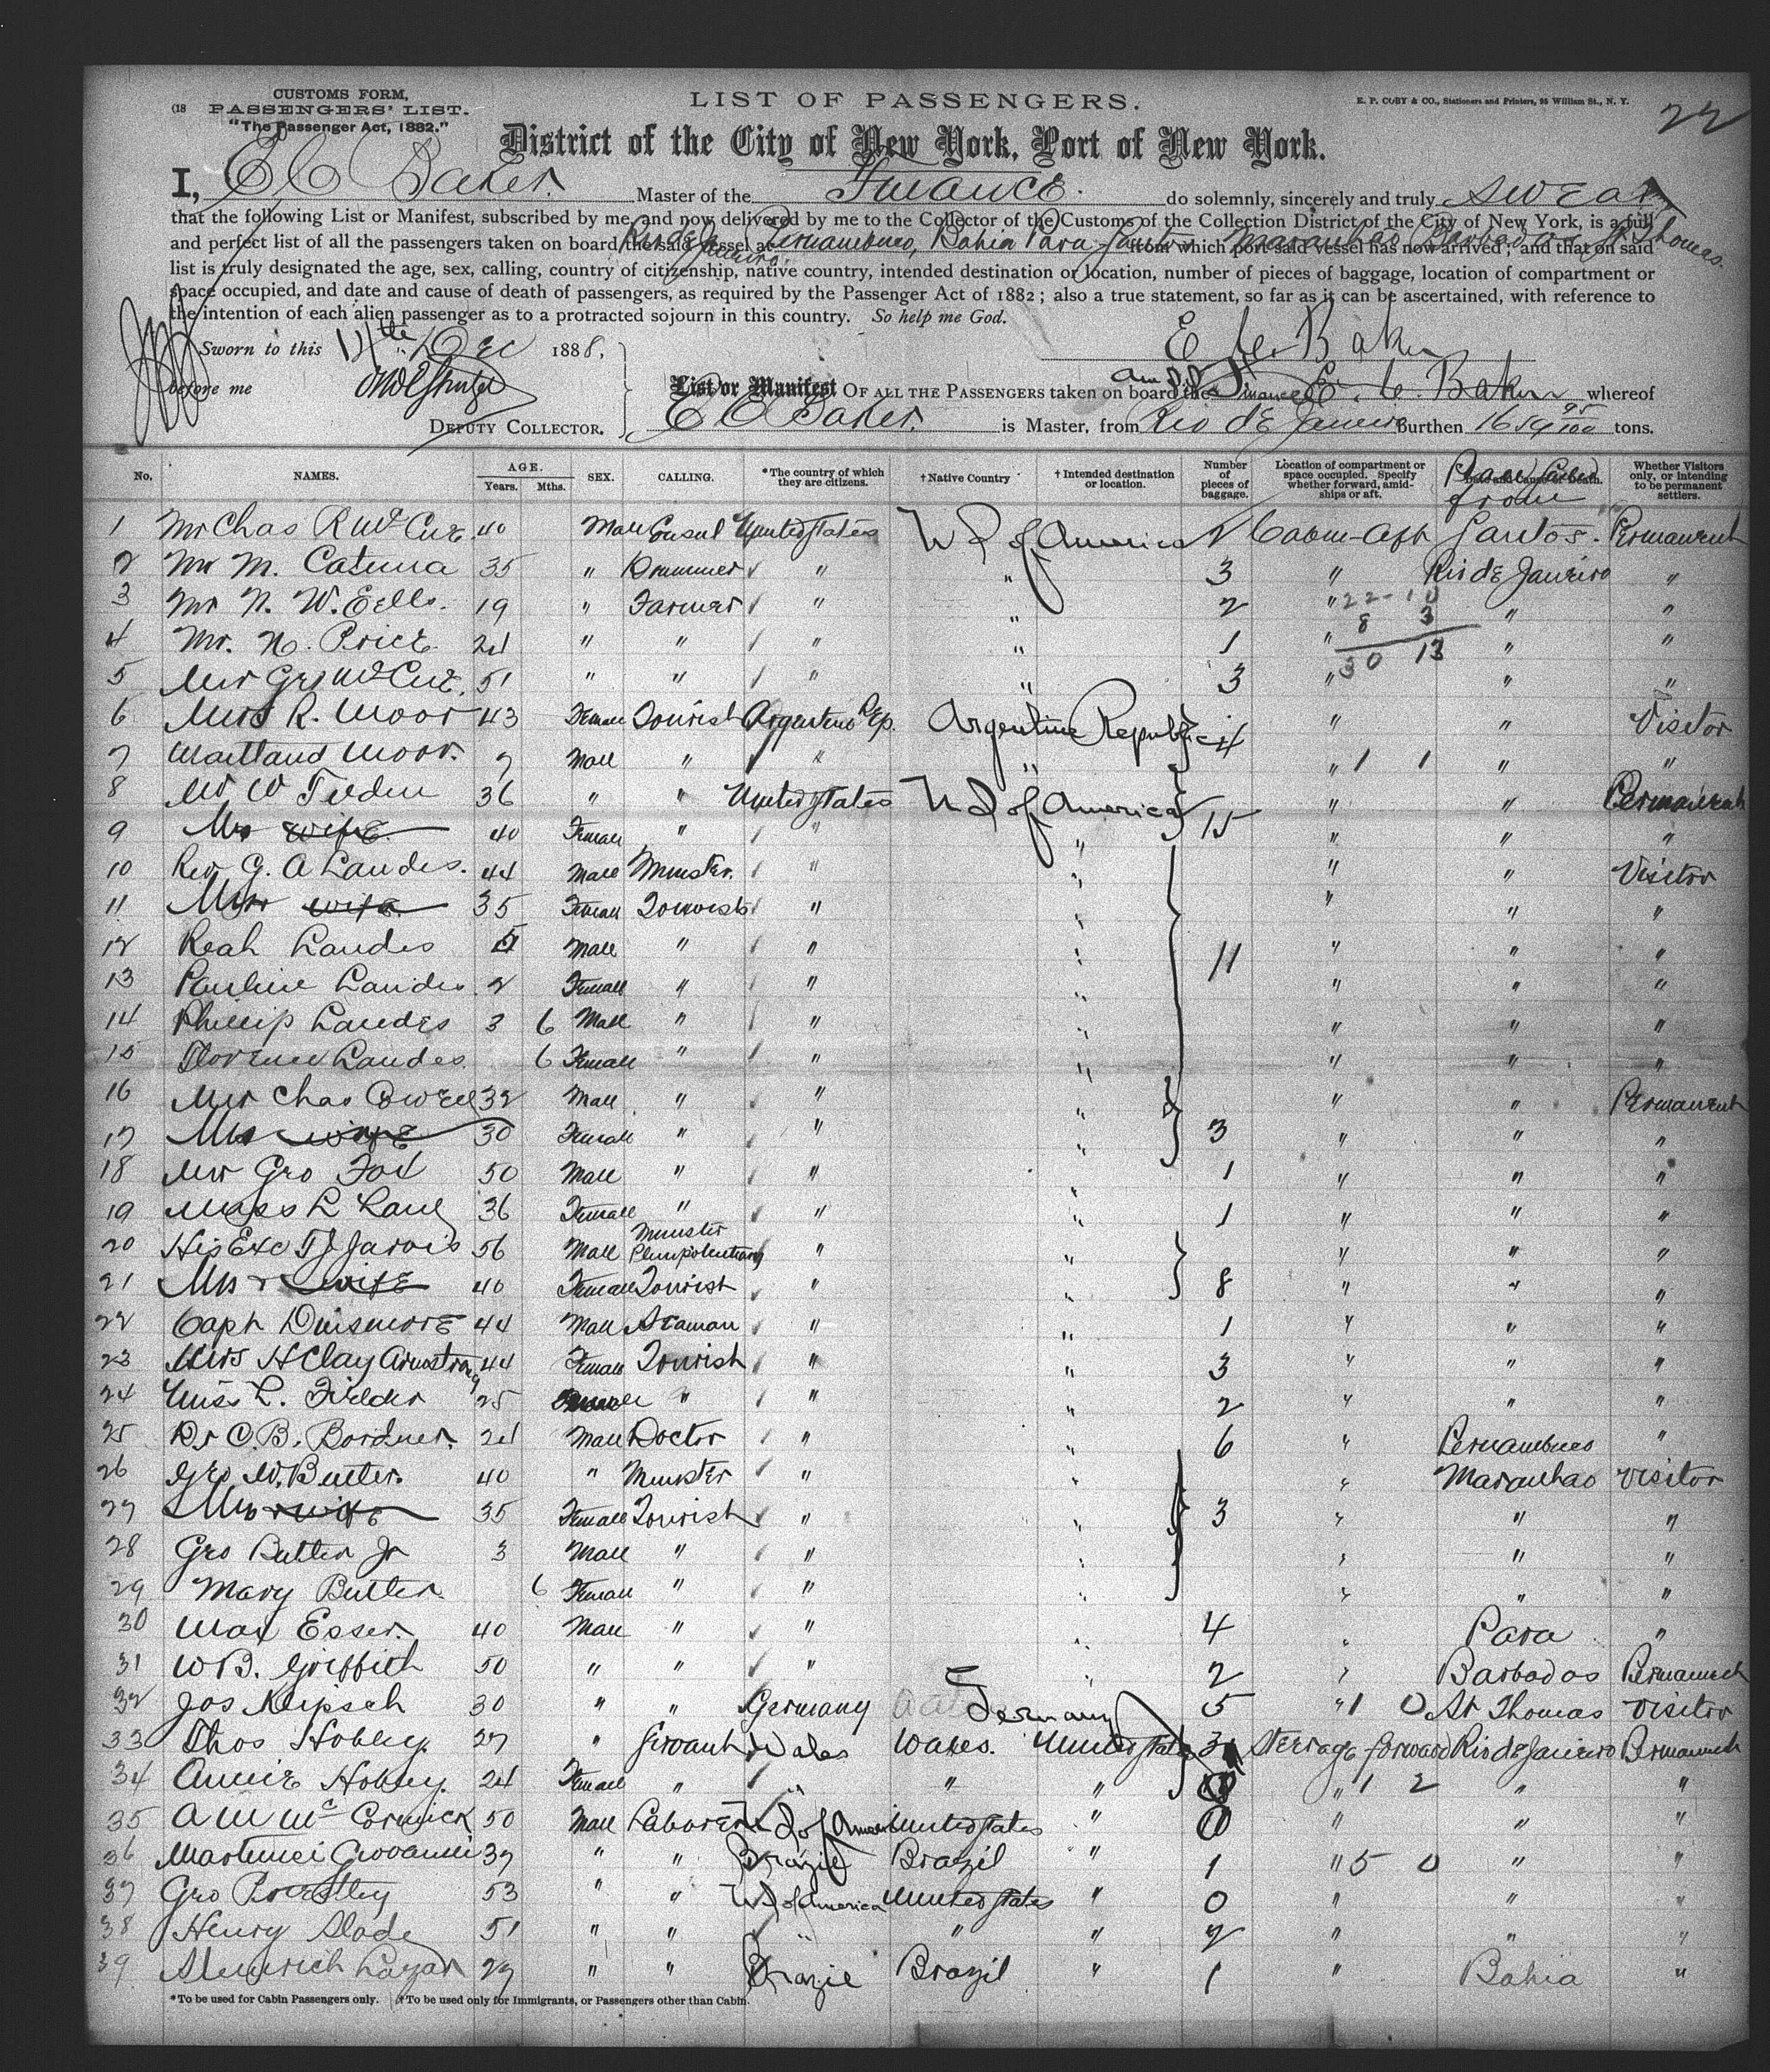 CUSTOMS FORM,
(18 PASSENGERS' LIST.
"The Passenger Act, 1882."
LIST OF PASSENGERS.
E. P. COBY & CO., Stationers and Printers, 95 William St., N. Y.
22
District of the City of New York, Port of New York.
I, E C Baker. Master of the Finance. do solemnly, sincerely and truly swear
that the following List or Manifest, subscribed by me, and now delivered by me to the Collector of the Customs of the Collection District of the City of New York, is a full
and perfect list of all the passengers taken on board the said vessel at Rio de Janeiro. Pernambuco, Bahia Para Santos Maranhao Barbados St Thomas. from which port said vessel has now arrived; and that on said
list is truly designated the age, sex, calling, country of citizenship, native country, intended destination or location, number of pieces of baggage, location of compartment or
space occupied, and date and cause of death of passengers, as required by the Passenger Act of 1882; also a true statement, so far as it can be ascertained, with reference to
the intention of each alien passenger as to a protracted sojourn in this country. So help me God.
Sworn to this Dec 1888,
E. C. Baker
before me
DEPUTY COLLECTOR.
List or Manifest OF ALL THE PASSENGERS taken on board the Am SS Finance E. C. Baker whereof
E C Baker. is Master, from Rio de Janeiro Burthen 1659 95/100 tons.
No. NAMES. AGE. Years. Mths. SEX. CALLING. *The country of which they are citizens. †Native Country †Intended destination or location. Number of pieces of baggage. Location of compartment or space occupied. Specify whether forward, amidships or aft. Place Sailed from Whether Visitors only, or intending to be permanent settlers.
1 Mr Chas R McCue. 40 Male Consul United States U S of America 2 Cabin-Aft Santos. Permanent
2 Mr M. Catuna 35 " Drummer " " 3 " Rio de Janeiro "
3 Mr N. W. Eells. 19 " Farmer " " 2 " 22-10 " "
4 Mr. N. Price 24 " " " " 1 " 8 3 " "
30 13
5 Mr Geo McCue. 51 " " " " 3 " " "
6 Mrs R. Moor 43 Female Tourist Argentine Rep. Argentine Republic 4 " " Visitor
7 Maitland Moor. 7 Male " " " " 1 1 " "
8 Mr W Tilden 36 " " United States U S of America 15 " " Permanent
9 Mrs wife 40 Female " " " " " "
10 Rev G. A Landes. 44 Male Minister. " " " " Visitor
11 Mrs wife 35 Female Tourist " " " " "
12 Reah Landes 5 Male " " " 11 " " "
13 Pauline Landes 2 Female " " " " " "
14 Phillip Landes 3 6 Male " " " " " "
15 Florence Landes. 6 Female " " " " " "
16 Mr Chas Cowell 32 Male " " " " " Permanent
17 Mrs wife 30 Female " " " 3 " " "
18 Mr Geo Fox 50 Male " " " 1 " " "
19 Miss L Lane 36 Female " " " 1 " " "
20 His Exc T J Jarvis 56 Male Minister Plenipotentiary " " " " "
21 Mrs wife 40 Female Tourist " " 8 " " "
22 Capt Dinsmore 44 Male Seaman " " 1 " " "
23 Mrs H Clay Armstrong 44 Female Tourist " " 3 " " "
24 Miss L. Fielder 25 Female " " " 2 " " "
25 Dr C. B. Bordner. 24 Male Doctor " " 6 " Pernambuco "
26 Geo W. Butler. 40 " Minister " " " Maranhao Visitor
27 Mrs wife 35 Female Tourist " " 3 " " "
28 Geo Butler Jr 3 Male " " " " " "
29 Mary Butler 6 Female " " " " " "
30 Max Esser. 40 Male " " " 4 " Para "
31 W B. Griffith 50 " " " " 2 " Barbados Permanent
32 Jos Klipsch 30 " " Germany Germany 5 " 1 0 St Thomas Visitor
33 Thos Hobley. 27 " Servant Wales Wales. United States 3 Steerage forward Rio de Janeiro Permanent
34 Annie Hobley. 24 Female " " " " " 1 2 " "
35 A W McCormick 50 Male Laborer U S of America United States " 0 " " "
36 Martinei Giovanni 37 " " Brazil Brazil " 1 " 5 0 " "
37 Geo Priestley 53 " " U S of America United States " 0 " " "
38 Henry Slade 51 " " " " " 2 " " "
39 Lazar 27 " " Brazil Brazil " 1 " Bahia "
*To be used for Cabin Passengers only. †To be used only for Immigrants, or Passengers other than Cabin.